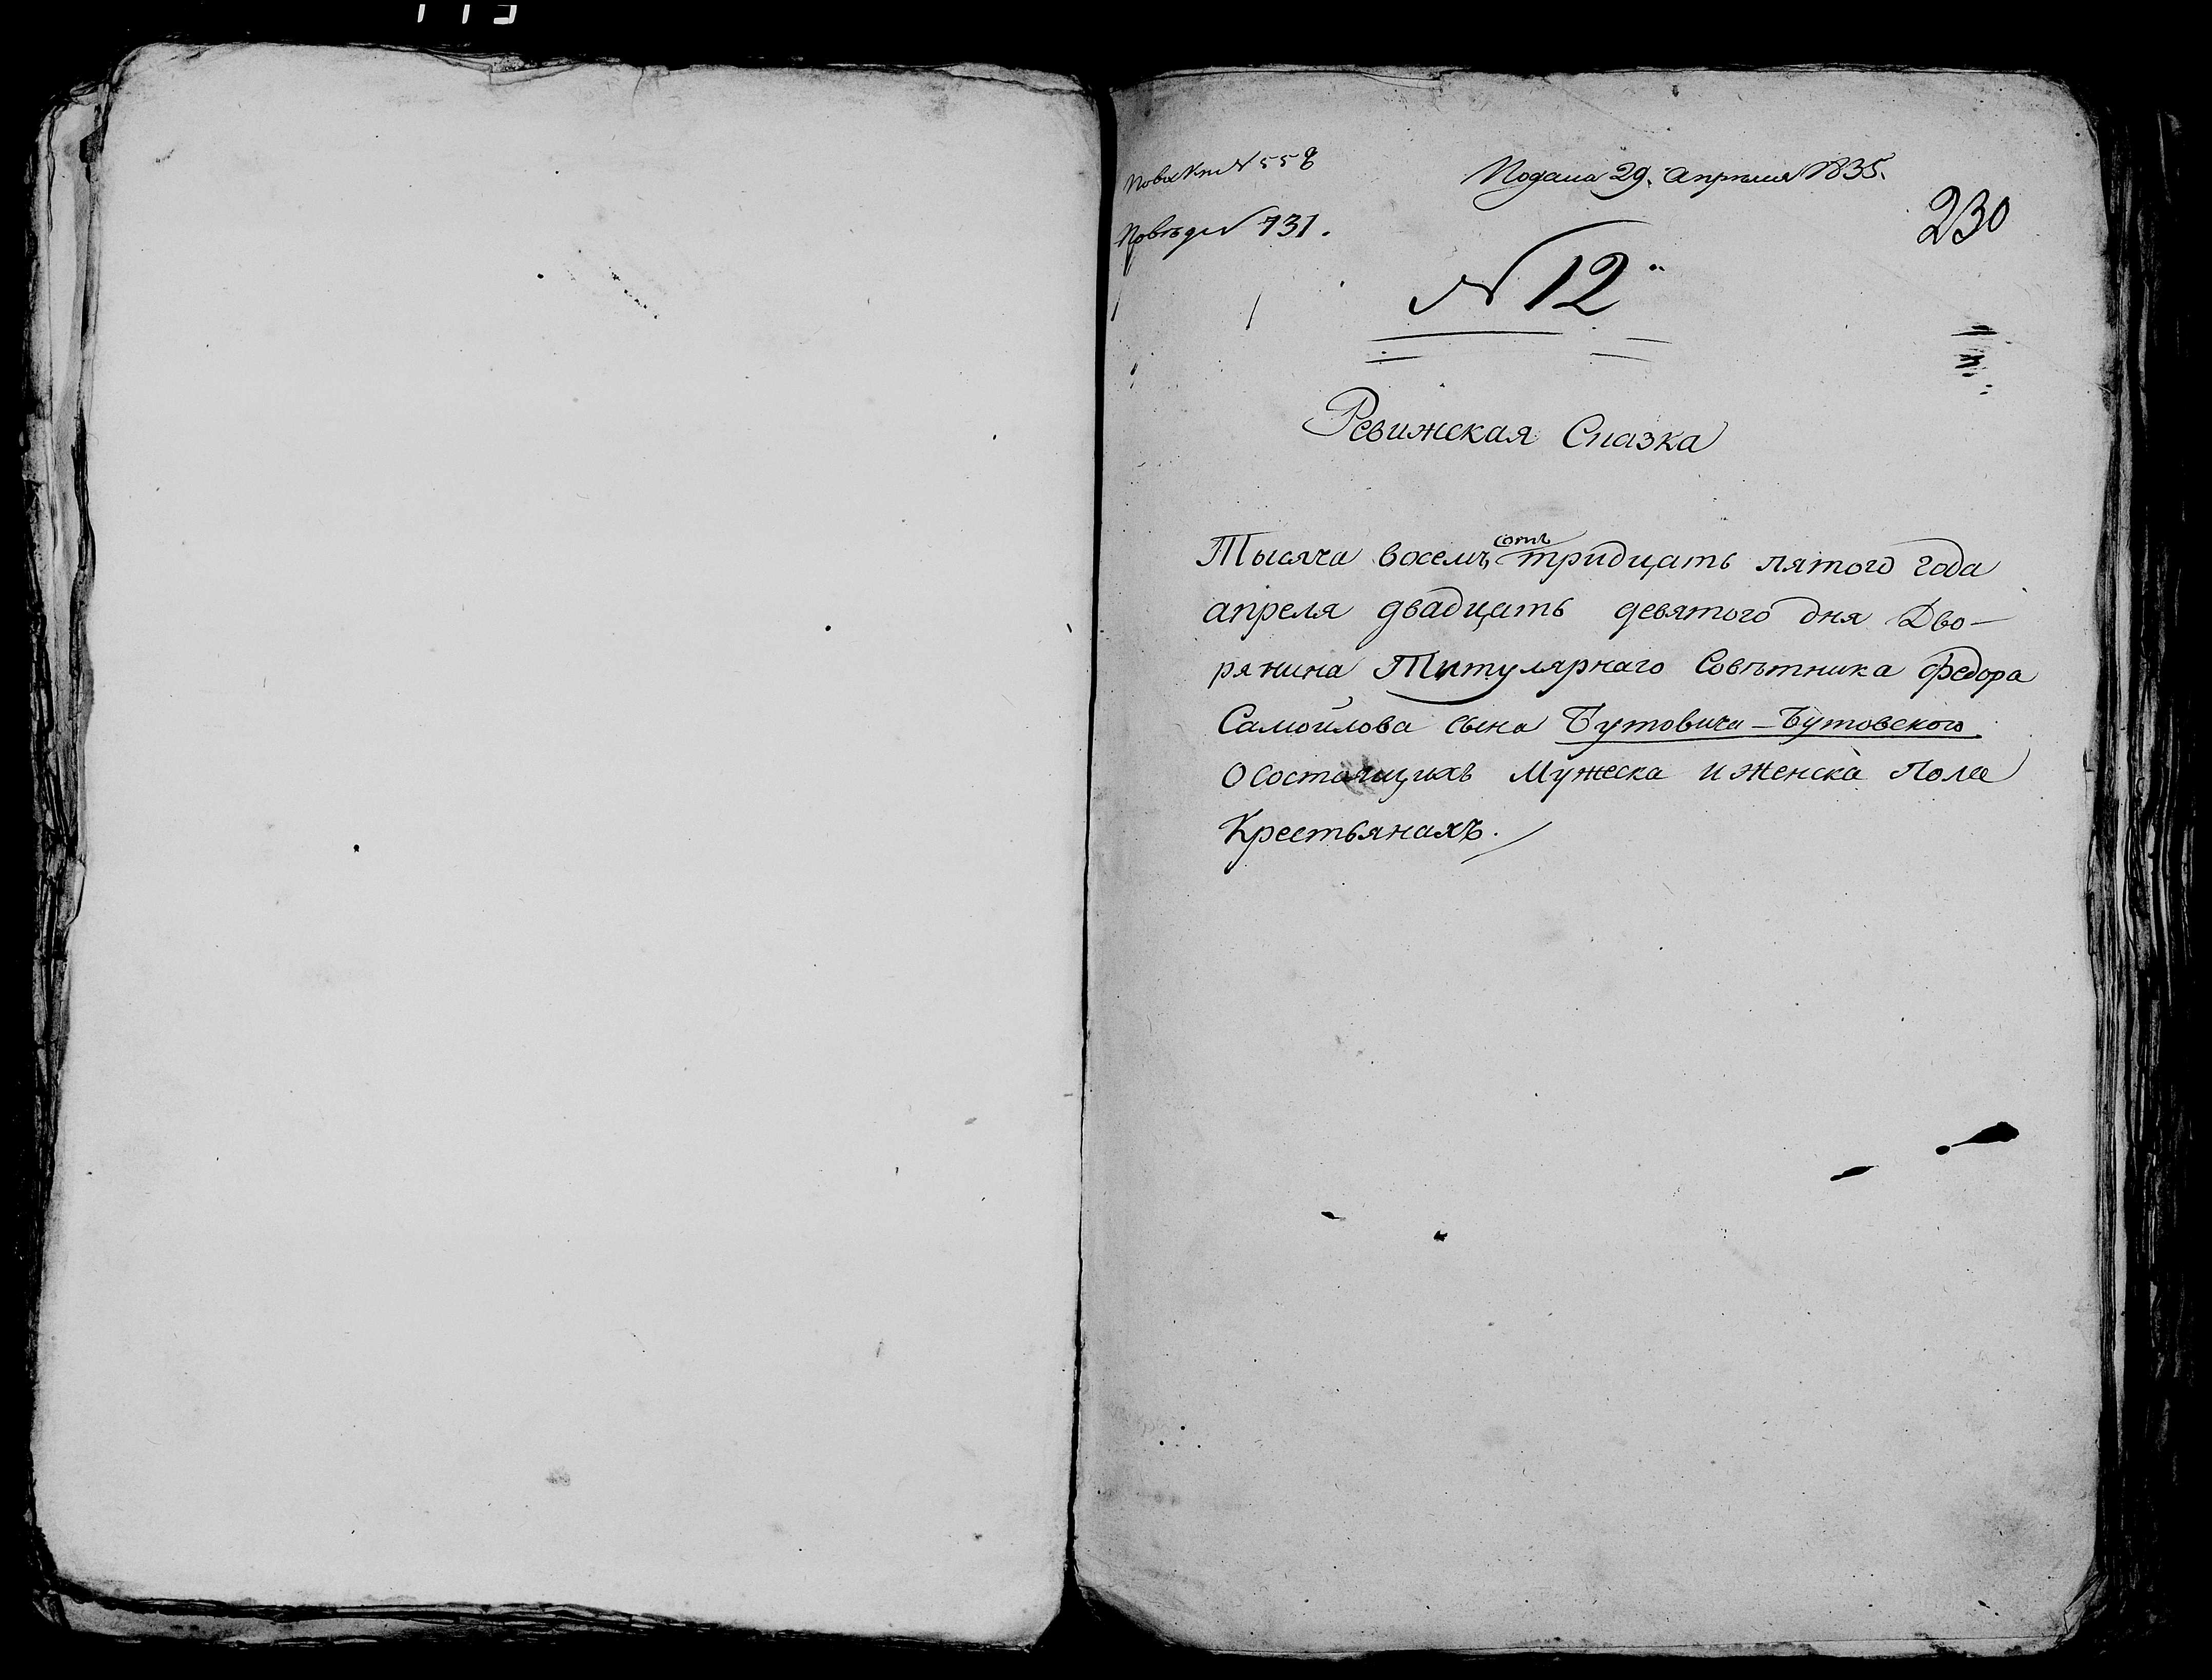 По вх Кни N 558
Подана 29. апреля 1835.
По вѣд N 731.
230
N 12
Ревижская Сказка
Тысяча восемъ сотъ тридцать пятого года
апреля двадцать девятого дня Дво-
рянина Титулярнаго Совѣтника Федора
Самойлова сына Бутовича-Бутовского
О состоящихъ Мужеска и женска пола
Крестьянахъ.